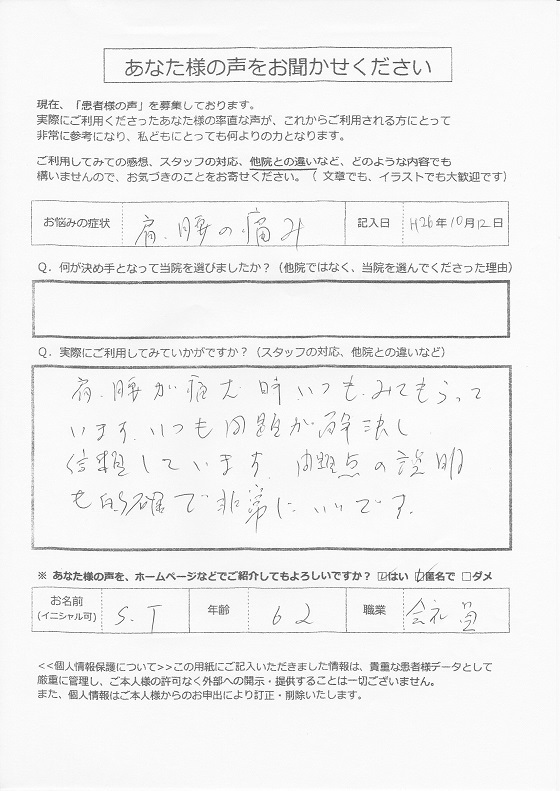 あなた様の声をお聞かせください
現在、「患者様の声」を募集しております。
実際にご利用くださったあなた様の率直な声が、これからご利用される方にとって
非常に参考になり、私どもにとっても何よりの力となります。
ご利用してみての感想、スタッフの対応、他院との違いなど、どのような内容でも
構いませんので、お気づきのことをお寄せください。（ 文章でも、イラストでも大歓迎です）
お悩みの症状 肩.腰の痛み 記入日 H26年10月12日
Q．何が決め手となって当院を選びましたか？（他院ではなく、当院を選んでくださった理由）
Q．実際にご利用してみていかがですか？（スタッフの対応、他院との違いなど）
肩.腰が痛む時いつもみてもらって
います.いつも問題が解決し
信頼しています.問題点の説明
も的確で非常にいいです.
※ あなた様の声を、ホームページなどでご紹介してもよろしいですか？ ☑はい ☑匿名で □ダメ
お名前 (イニシャル可) S.T 年齢 62 職業 会社員
<<個人情報保護について>>この用紙にご記入いただきました情報は、貴重な患者様データとして
厳重に管理し、ご本人様の許可なく外部への開示・提供することは一切ございません。
また、個人情報はご本人様からのお申出により訂正・削除いたします。